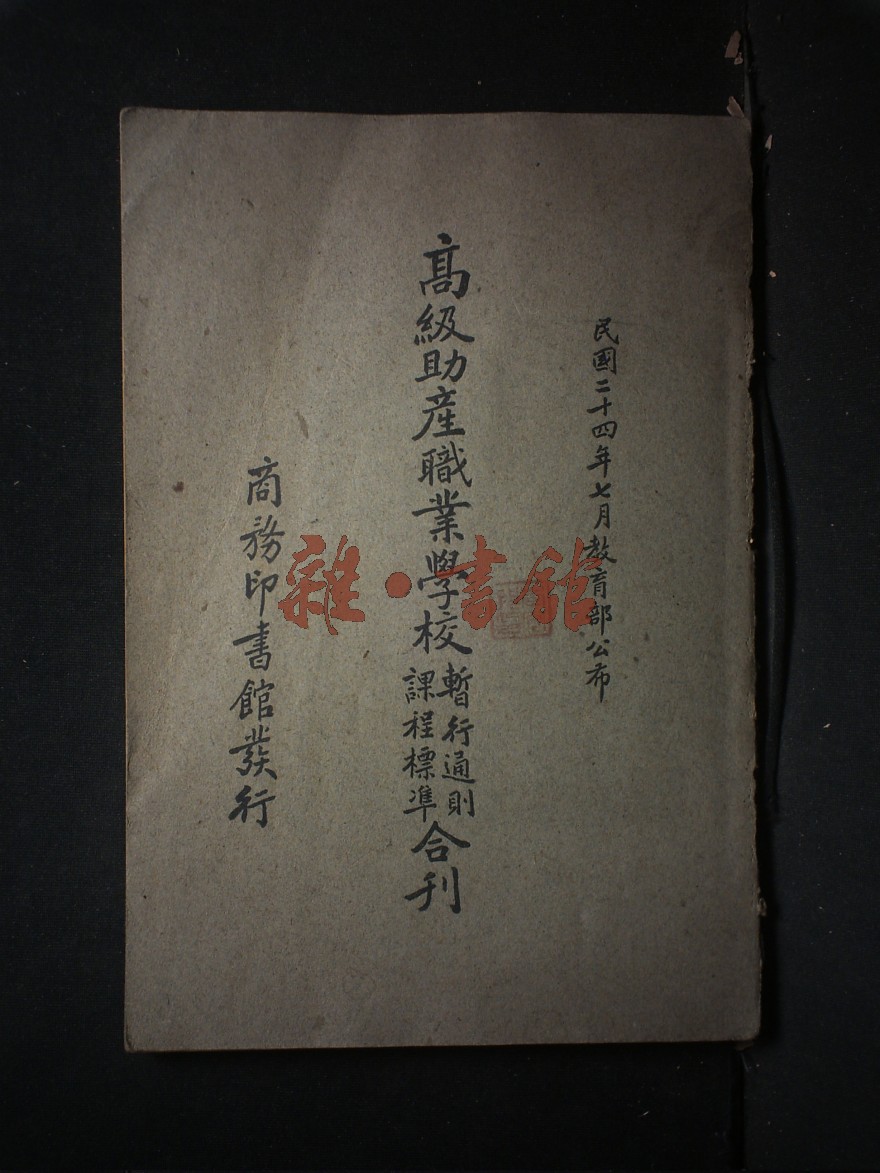 民國二十四年七月教育部公布
高級助產職業學校
暫行通則
課程標準
合刊
商務印書館發行
雜·書館